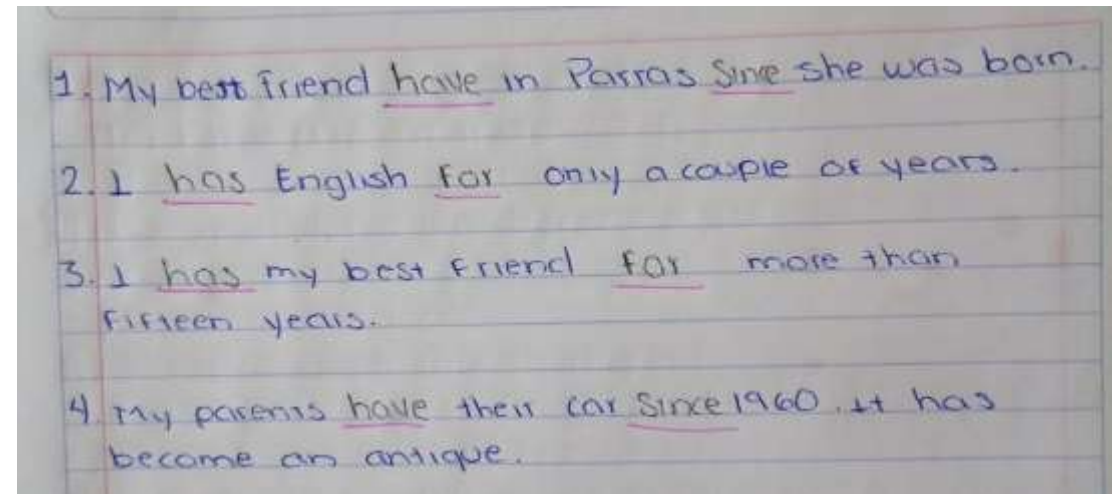 1. My best friend have in Parras Since she was born.
2. I has English for only a couple of years.
3. I has my best friend for more than
fifteen years.
4. My parents have their car Since 1960. It has
become an antique.